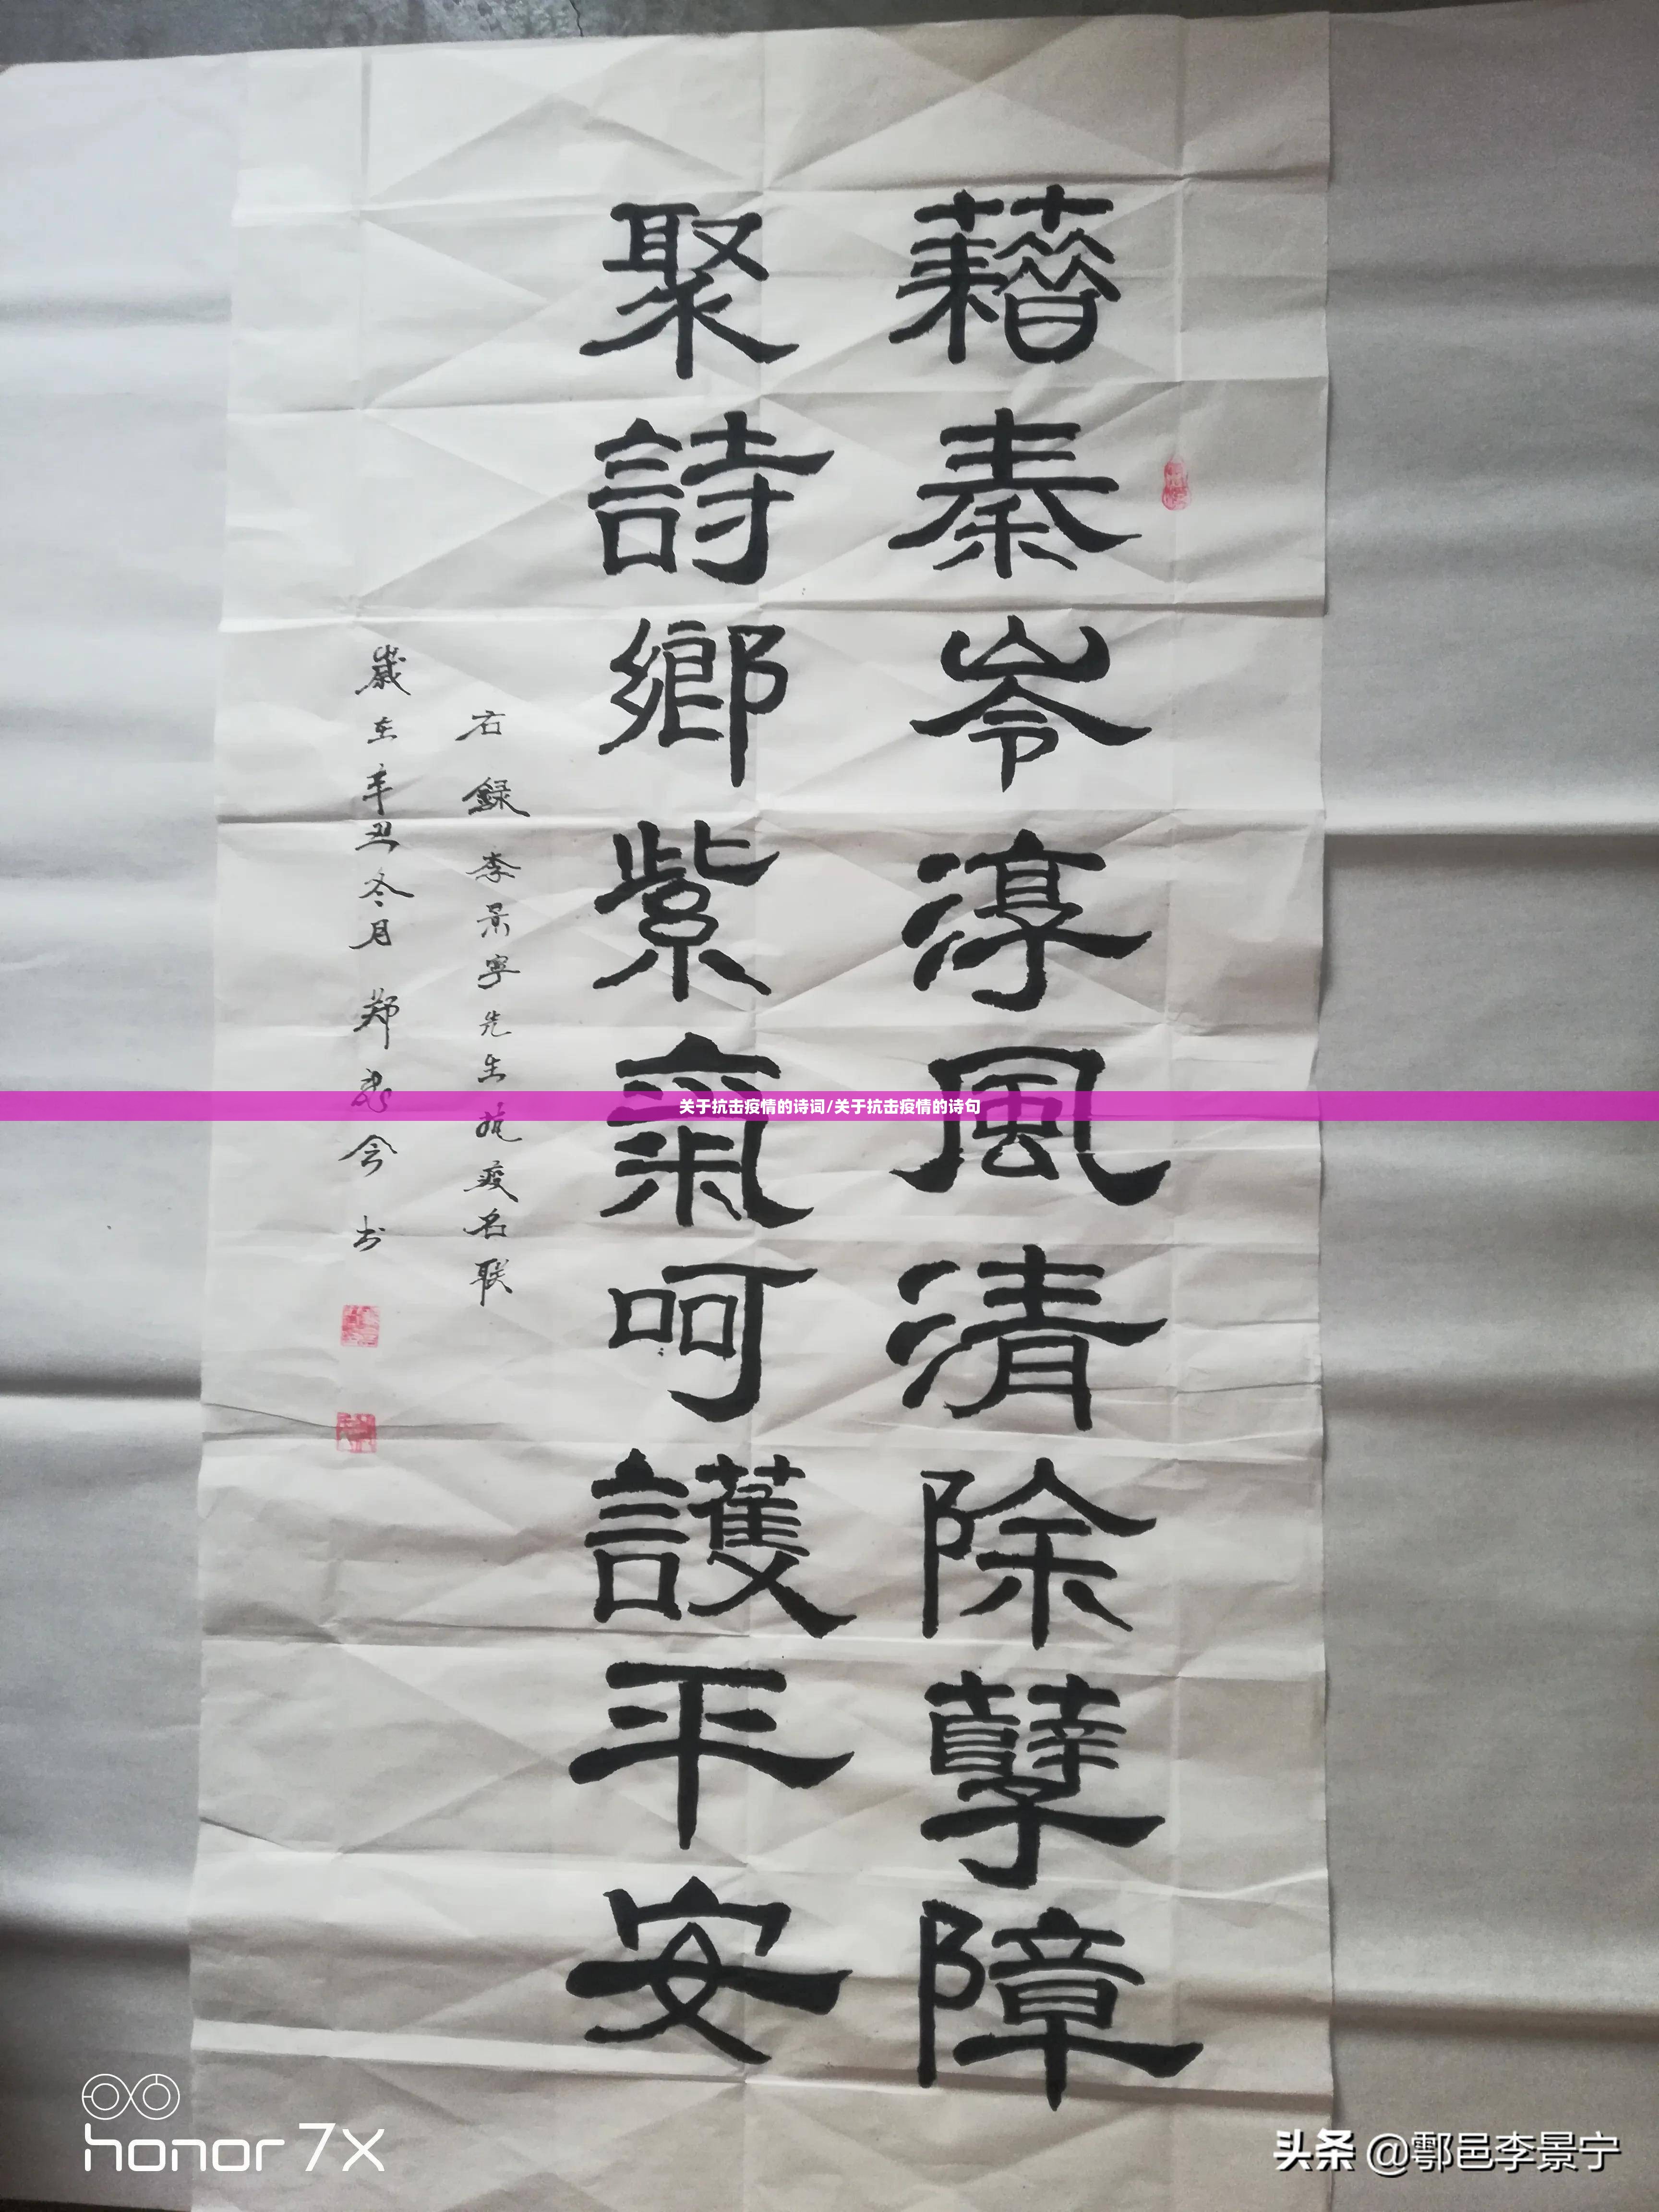 藉秦岺淳風清除孽障
聚詩鄉紫氣呵護平安
右録李景寧先生抗疫名联
歲在辛丑冬月 郑忠会书
关于抗击疫情的诗词/关于抗击疫情的诗句
honor 7X
头条 @鄠邑李景宁